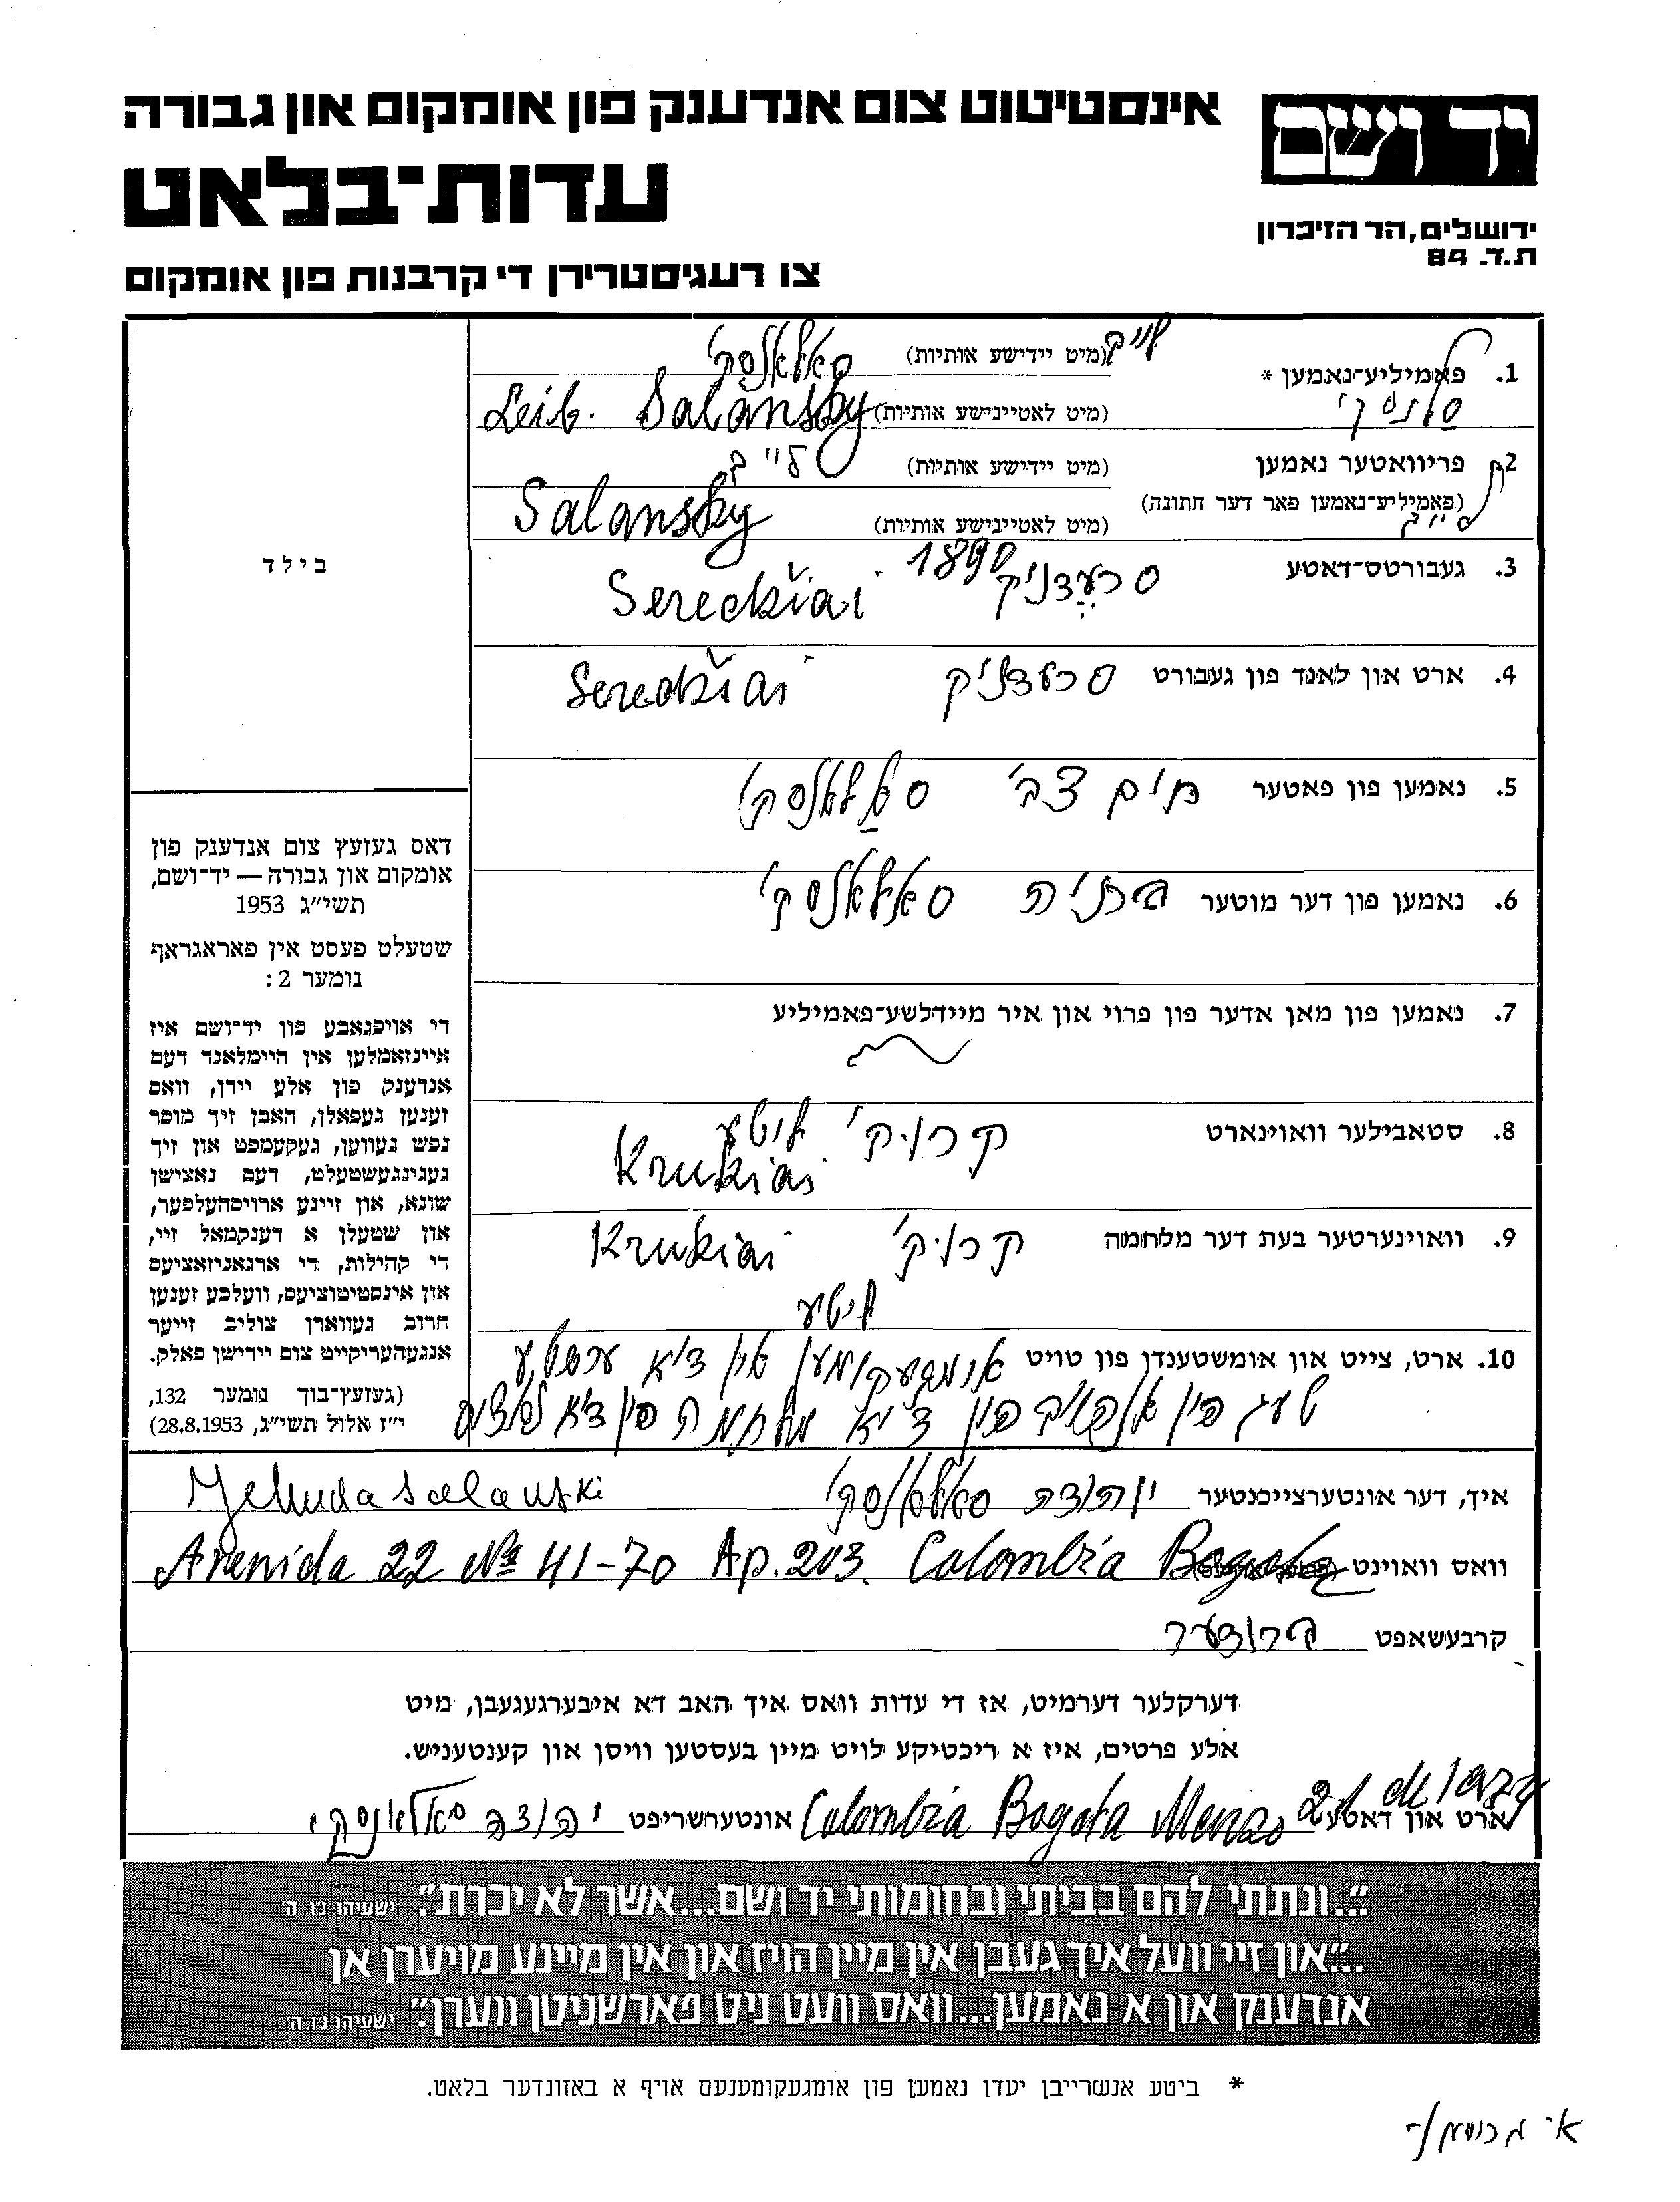 אינסטיטוט צום אנדענק פון אומקום און גבורה
עדות־בלאט
צו רעגיסטרירן די קרבנות פון אומקום
יד ושם
ירושלים, הר הזיכרון
ת.ד. 84
1. פאמיליע־נאמען *
סלנסקי
(מיט יידישע אותיות) לייב סאלאנסקי
(מיט לאטייניישע אותיות) Leib. Salansky
2. פריוואטער נאמען (מיט יידישע אותיות) לייב
(פאמיליע־נאמען פאר דער חתונה)
לייב
(מיט לאטייניישע אותיות) Salansky
3. געבורטס־דאטע 1890 סרעדניק Seredžiai
4. ארט און לאנד פון געבורט סרעדניק Seredžiai
5. נאמען פון פאטער חיים צבי סאלאנסקי
6. נאמען פון דער מוטער סאלאנסקי
7. נאמען פון מאן אדער פון פרוי און איר מיידלשע־פאמיליע
8. סטאבילער וואוינארט קרוקי ליטע
Krukiai
9. וואוינערטער בעת דער מלחמה קרוקי Krukiai
ליטע
10. ארט, צייט און אומשטענדן פון טויט אומגעקומען אין דיא ערשטע
טעג פין אנהויב פין דיא מלחמה פין דיא
בילד
דאס געזעץ צום אנדענק פון
אומקום און גבורה — יד־ושם,
תשי״ג 1953
שטעלט פעסט אין פאראגראף
נומער 2:
די אויפגאבע פון יד־ושם איז
איינזאמלען אין היימלאנד דעם
אנדענק פון אלע יידן, וואס
זענען געפאלן, האבן זיך מוסר
נפש געווען, געקעמפט און זיך
געגינגעשטעלט, דעם נאצישן
שונא, און זיינע ארויסהעלפער,
און שטעלן א דענקמאל זיי,
די קהילות, די ארגאניזאציעס
און אינסטיטוציעס, וועלכע זענען
חרוב געווארן צוליב זייער
אנגעהעריקייט צום יידישן פאלק.
(געזעץ־בוך נומער 132,
י״ז אלול תשי״ג, 28.8.1953)
איך, דער אונטערצייכנטער יהודה סאלאנסקי Yehuda Salanski
וואס וואוינט Avenida 22 № 41-70 Ap. 203. Colombia Bogota
קרבעשאפט ברודער
דערקלער דערמיט, אז די עדות וואס איך האב דא איבערגעגעבן, מיט
אלע פרטים, איז א ריכטיקע לויט מיין בעסטען וויסן און קענטעניש.
ארט און דאטע Colombia Bogota אונטערשריפט יהודה סאלאנסקי
״..ונתתי להם בביתי ובחומותי יד ושם...אשר לא יכרת״. ישעיהו נו. ה
..״און זיי וועל איך געבן אין מיין הויז און אין מיינע מויערן אן
אנדענק און א נאמען...וואס וועט ניט פארשניטן ווערן״. ישעיהו נו. ה
* ביטע אנשרייבן יעדן נאמען פון אומגעקומענעם אויף א באזונדער בלאט.